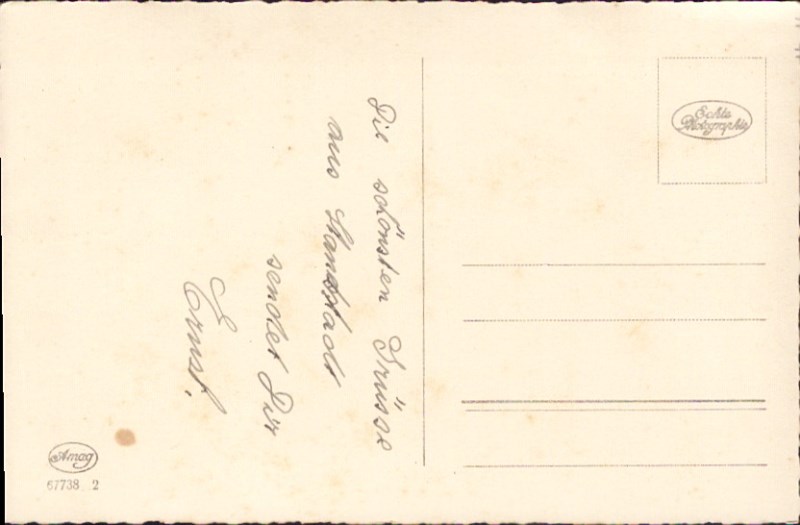 Die schönsten Grüsse
aus Stansstadt
sendet Dir
Ernst.
Echte
Photographie
Amag
67738 2